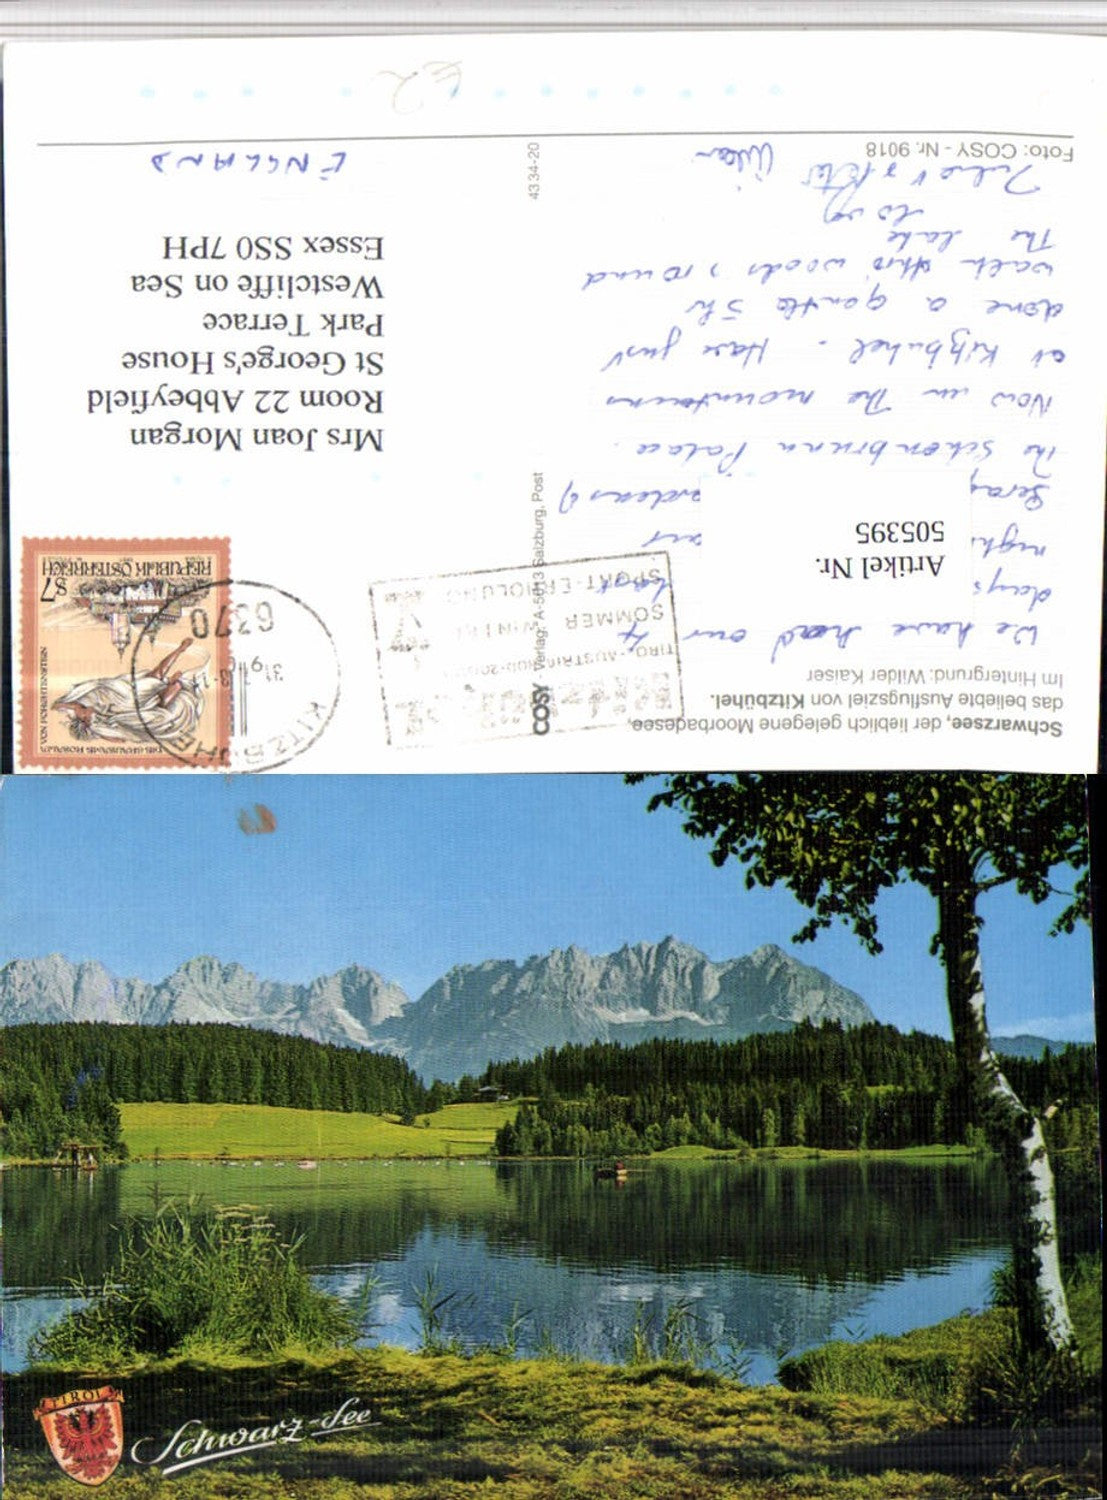 Schwarzsee, der lieblich gelegene Moorbadesee,
das beliebte Ausflugsziel von Kitzbühel.
Im Hintergrund: Wilder Kaiser
We have had our 4
days
nigh
Artikel Nr.
505395
The Schonbrunn Palace.
Now in The mountains
at Kitzbuhel. Have just
done a gentle 5 hr
walk thro woods & round
The lake
Foto: COSY - Nr. 9018
COSY Verlag, A-5013 Salzburg, Post
4334-20
SOMMER WINTER
SPORT-ERHOLUNG
KITZBÜHEL
6370
VON FORCHTENSTEIN
S7
REPUBLIK ÖSTERREICH
Mrs Joan Morgan
Room 22 Abbeyfield
St George's House
Park Terrace
Westcliffe on Sea
Essex SS0 7PH
ENGLAND
£2
TIROL
Schwarz-See